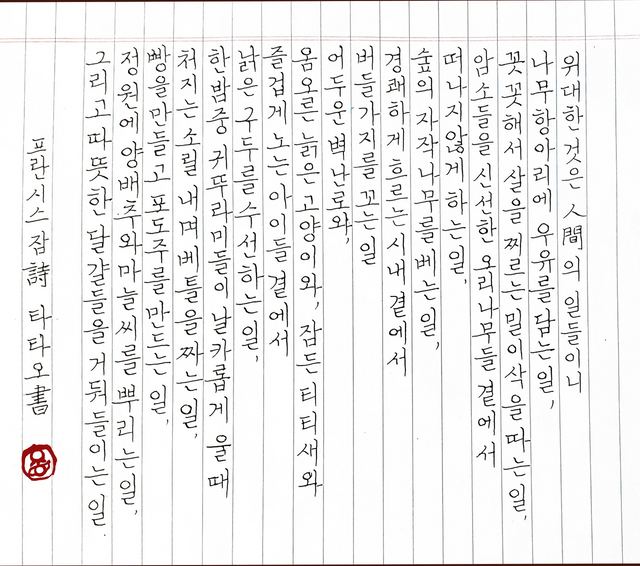 위대한 것은 人間의 일들이니
나무 항아리에 우유를 담는 일,
꼿꼿해서 살을 찌르는 밀 이삭을 따는 일,
암소들을 신선한 오리나무들 곁에서
떠나지 않게 하는 일,
숲의 자작나무를 베는 일,
경쾌하게 흐르는 시내 곁에서
버들가지를 꼬는 일
어두운 벽난로와,
옴 오른 늙은 고양이와, 잠든 티티새와
즐겁게 노는 아이들 곁에서
낡은 구두를 수선하는 일,
한밤중 귀뚜라미들이 날카롭게 울 때
처지는 소릴 내며 베틀을 짜는 일,
빵을 만들고 포도주를 만드는 일,
정원에 양배추와 마늘씨를 뿌리는 일,
그리고 따뜻한 달걀들을 거둬들이는 일.
프란시스 잠 詩 타타오 書